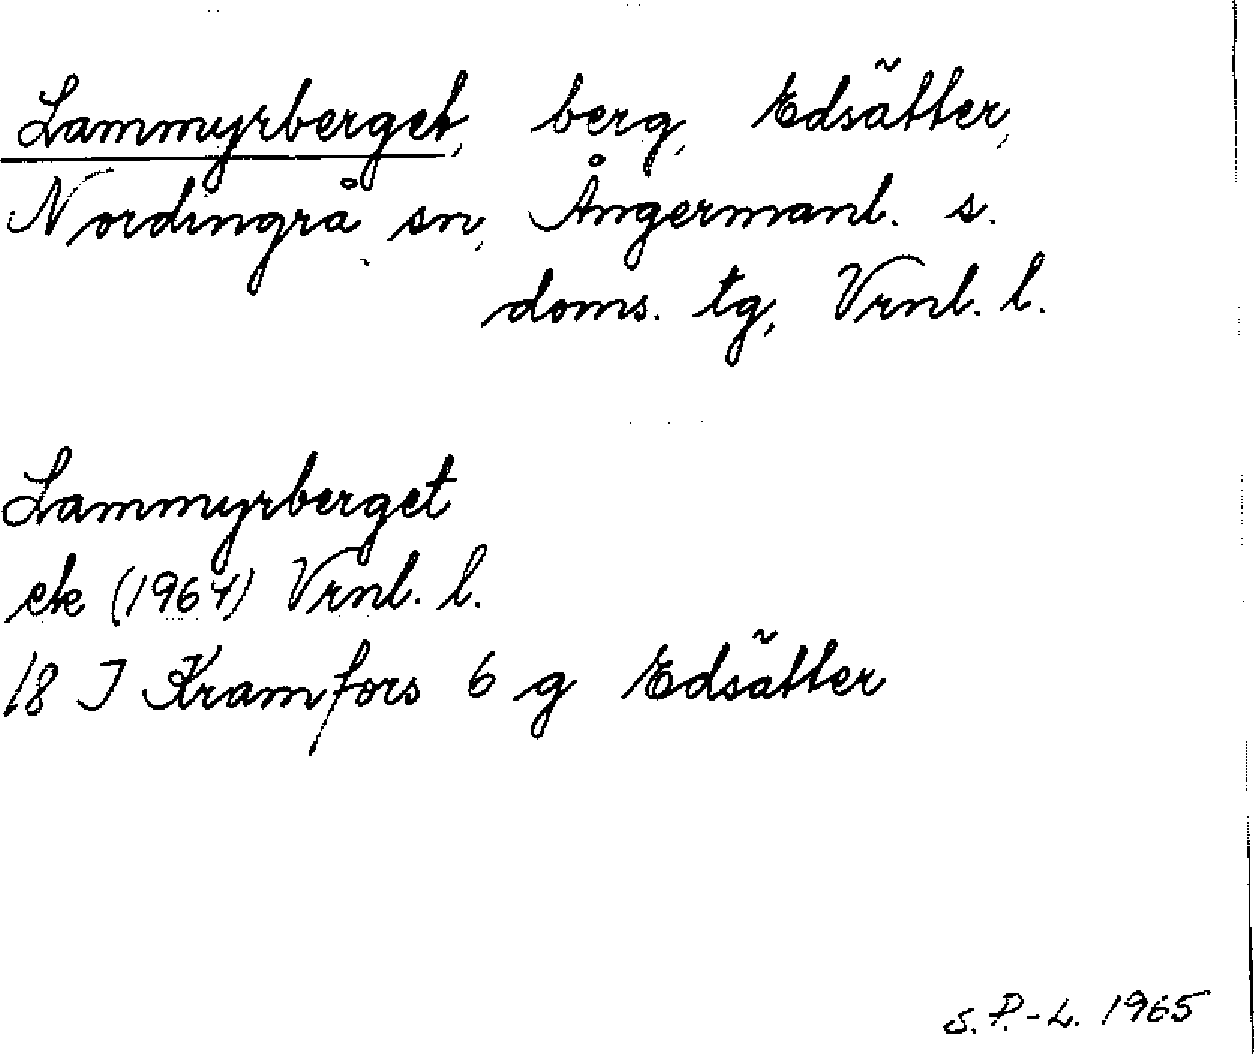 Lammyrberget, berg, Edsätter,
Nordingrå sn, Ångermanl. s.
doms. tg, Vrnl. l.
Lammyrberget
ek (1964) Vrnl. l.
18 I Kramfors 6 g Edsätter
S. P.-L. 1965